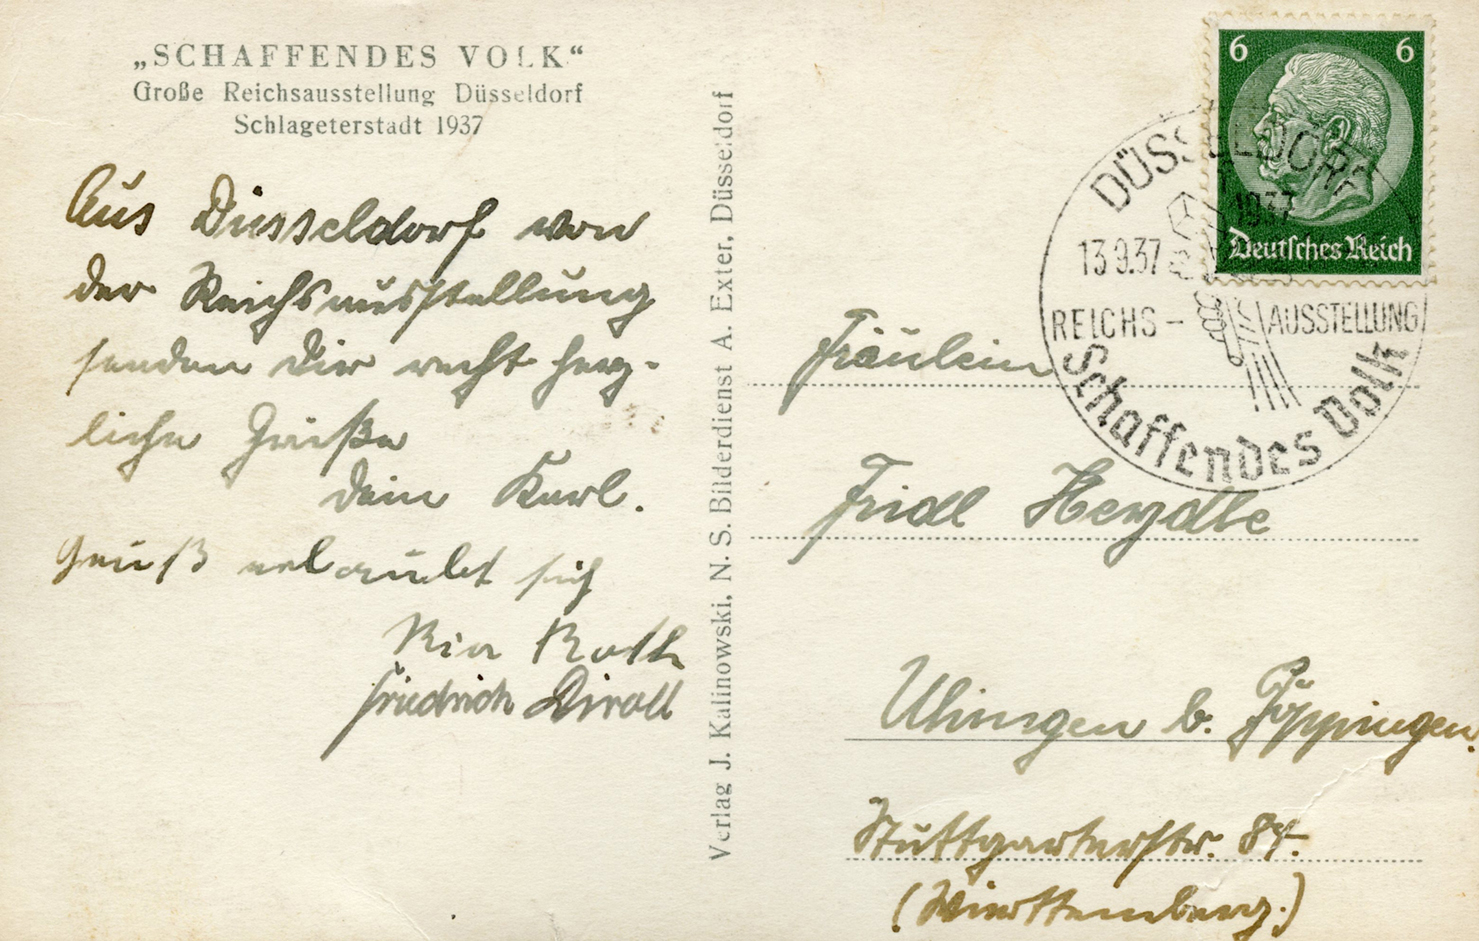 „SCHAFFENDES VOLK“
Große Reichsausstellung Düsseldorf
Schlageterstadt 1937
Aus Düsseldorf von
der Reichsausstellung
senden Dir recht herz-
liche Grüße
Dein Karl.
Gruß erlaubt sich
Ria Roth
Friedrich
Verlag J. Kalinowski, N. S. Bilderdienst A. Exter, Düsseldorf
6 6
Deutsches Reich
DÜSSELDORF
1937
13.9.37
REICHS- AUSSTELLUNG
Schaffendes Volk
Fräulein
Fridl Heydle
Uhingen b. Göppingen.
Stuttgarterstr. 84.
(Württemberg.)